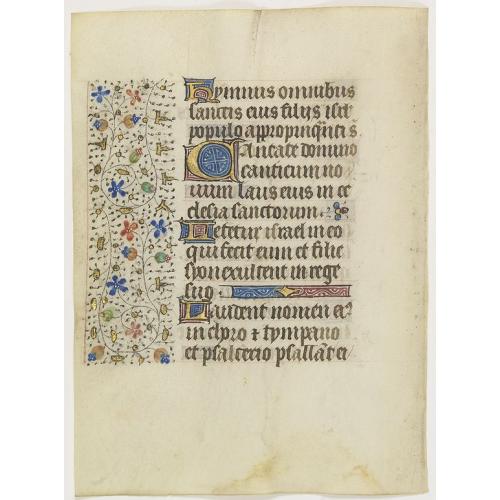 Hymnus omnibus
sanctis eius filijs isrl
populo appropinq̃nti s.
Cantate domino
canticum no
uum laus eius in ec
clesia sanctorum.
Letetur israel in eo
qui fecit eum et filie
syon exultent in rege
suo.
Laudent nomen ei'
in choro ⁊ tympano
et psalterio psallãt ei